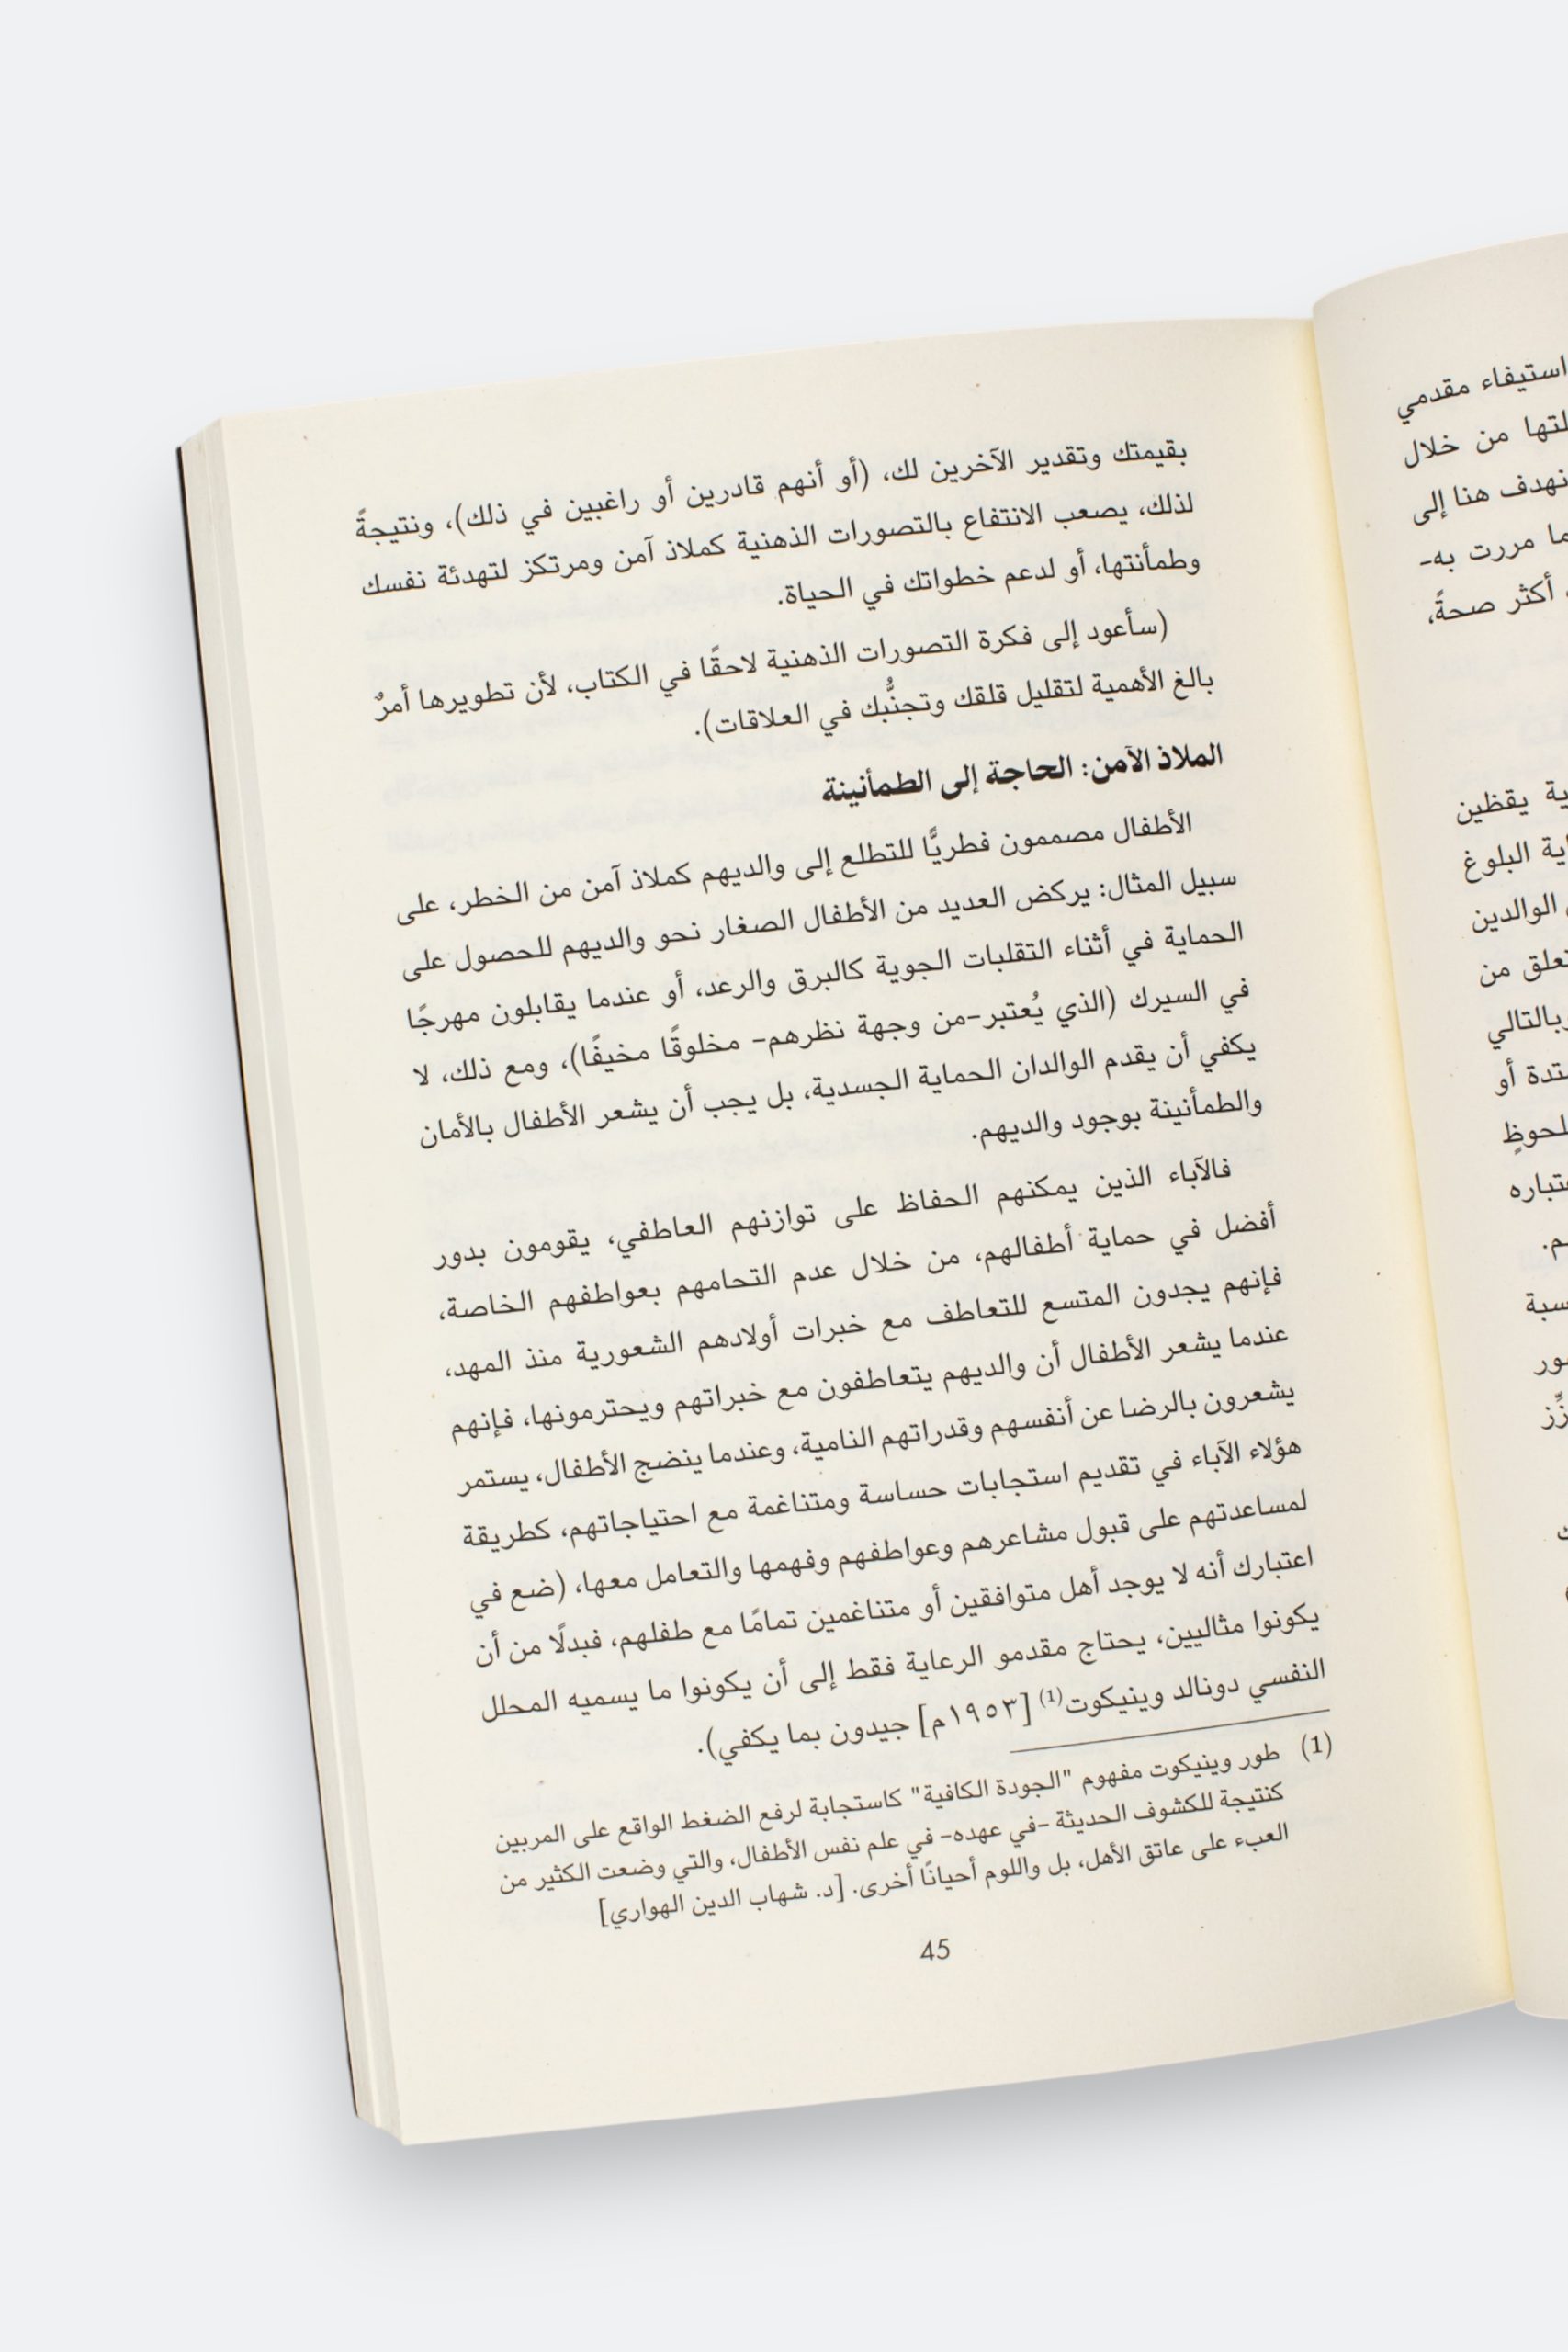 استيفاء مقدمي
من خلال
نهدف هنا إلى
مررت به-
أكثر صحةً،
يقظين
البلوغ
الوالدين
من
بالتالي
أو
بقيمتك وتقدير الآخرين لك، (أو أنهم قادرين أو راغبين في ذلك)، ونتيجةً
لذلك، يصعب الانتفاع بالتصورات الذهنية كملاذ آمن ومرتكز لتهدئة نفسك
وطمأنتها، أو لدعم خطواتك في الحياة.
(سأعود إلى فكرة التصورات الذهنية لاحقًا في الكتاب، لأن تطويرها أمرٌ
بالغ الأهمية لتقليل قلقك وتجنُّبك في العلاقات).
الملاذ الآمن: الحاجة إلى الطمأنينة
الأطفال مصممون فطريًّا للتطلع إلى والديهم كملاذ آمن من الخطر، على
سبيل المثال: يركض العديد من الأطفال الصغار نحو والديهم للحصول على
الحماية في أثناء التقلبات الجوية كالبرق والرعد، أو عندما يقابلون مهرجًا
في السيرك (الذي يُعتبر-من وجهة نظرهم- مخلوقًا مخيفًا)، ومع ذلك، لا
يكفي أن يقدم الوالدان الحماية الجسدية، بل يجب أن يشعر الأطفال بالأمان
والطمأنينة بوجود والديهم.
فالآباء الذين يمكنهم الحفاظ على توازنهم العاطفي، يقومون بدور
أفضل في حماية أطفالهم، من خلال عدم التحامهم بعواطفهم الخاصة،
فإنهم يجدون المتسع للتعاطف مع خبرات أولادهم الشعورية منذ المهد،
عندما يشعر الأطفال أن والديهم يتعاطفون مع خبراتهم ويحترمونها، فإنهم
يشعرون بالرضا عن أنفسهم وقدراتهم النامية، وعندما ينضج الأطفال، يستمر
هؤلاء الآباء في تقديم استجابات حساسة ومتناغمة مع احتياجاتهم، كطريقة
لمساعدتهم على قبول مشاعرهم وعواطفهم وفهمها والتعامل معها، (ضع في
اعتبارك أنه لا يوجد أهل متوافقين أو متناغمين تمامًا مع طفلهم، فبدلًا من أن
يكونوا مثاليين، يحتاج مقدمو الرعاية فقط إلى أن يكونوا ما يسميه المحلل
النفسي دونالد وينيكوت(1) [١٩٥٣م] جيدون بما يكفي).
(1) طور وينيكوت مفهوم "الجودة الكافية" كاستجابة لرفع الضغط الواقع على المربين
كنتيجة للكشوف الحديثة -في عهده- في علم نفس الأطفال، والتي وضعت الكثير من
العبء على عاتق الأهل، بل واللوم أحيانًا أخرى. [د. شهاب الدين الهواري]
45